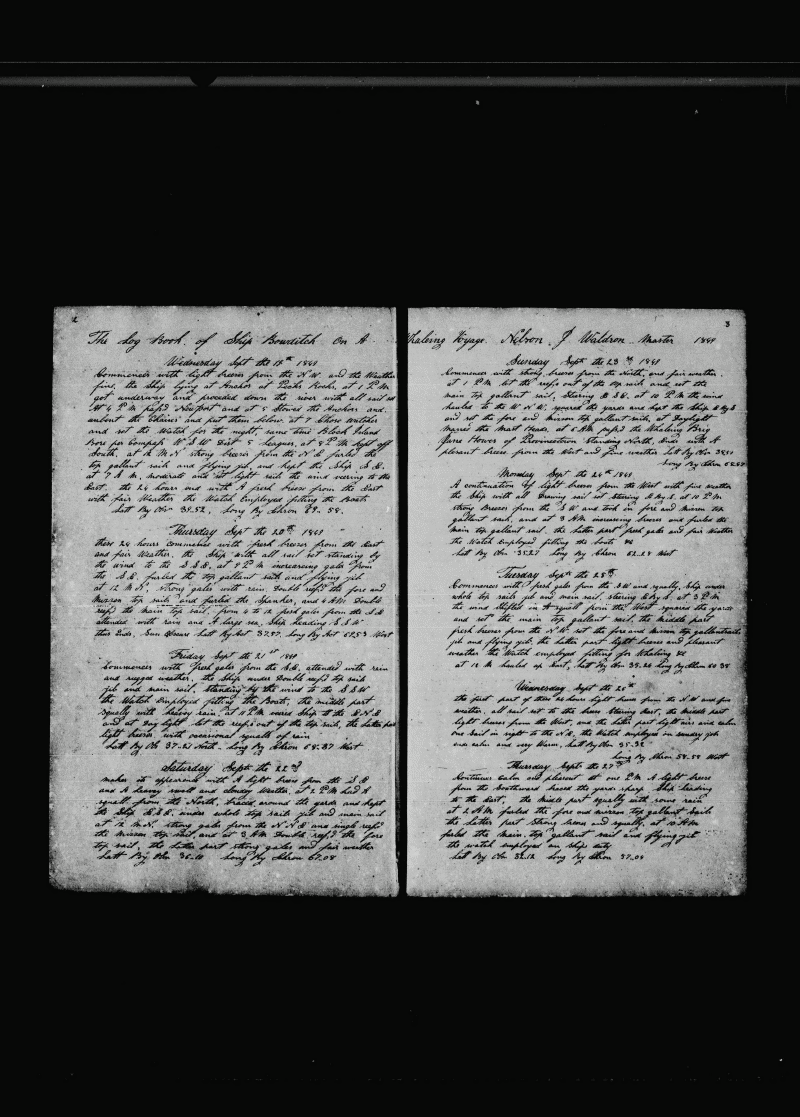 2
The Log Book of Ship Bowditch On A
Wednesday Sept the 19th 1849
Commences with light breezes from the N.W. and the Weather
fine, the Ship lying at Anchor at at 1 P.M
got underway and proceded down the river with all sail set
At 4 P.M pass'd Newport and at 5 Stowed the Anchors and
unbent the Chains and put them below, at 7 Chose watches
and set the Watch for the night, same time Block Island
Bore per Compass W S W Dist 5 Leagues, at 8 P.M light off
South, at 12 M.N strong breezes from the N.E. furled the
top gallant sails and flying jib, and kept the Ship S.E.
at 7 A.M. moderate and set light sails the wind veering to the
East. the 24 hours end with A fresh breeze from the East
with fair Weather the Watch Employed fitting the Boats
Latt By Obs 39.52. Long By Chron 69.58.
Thursday Sept the 20th 1849
these 24 hours Commences with fresh breezes from the East
and fair Weather, the Ship with all sail set standing by
the wind to the S.S.E. at 8 P.M increasing gale from
the S.E. furled the top gallant sails and flying jib
at 12 M.N. strong gales with rain. Double reef'd the fore and
mizzen top sails and furled the Spanker, and 4 A.M. Double
reef'd the main top sail, from 4 to 12 fresh gales from the S.E
attended with rain and A large sea. Ship heading S.S.W
thus Ends. Sun Obscure Latt By Act Long By Act 69.53 West
Friday Sept the 21st 1849
Commences with fresh gales from the S.E. attended with rain
and rugged weather, the Ship under Double reef'd top sails
jib and main sail. standing by the wind to the S S W
the Watch Employed fitting the Boats, the middle part
squally with heavy rain, at 11 P.M weared Ship to the E.N.E
and at Day light let the reefs out of the top sails, the latter part
light breezes with occasional squalls of rain
Latt By Obs 37.21 North. Long By Chron 68.37 West
Saturday Sept the 22d
makes its appearance with A light breeze from the S.E
and A heavey swell and cloudy Weather, at 2 P.M had A
squall from the North, braced around the yards and kept
the Ship E.S.E. under whole top sails jib and main sail
at 12 M.N. strong gales from the N.N.E and single reef'd
the mizzen top sail, and at 3 A.M Double reef'd the fore
top sail, the latter part strong gales and fair weather
Latt By Obs 36.10 Long By Chron 67.08
3
Whaleing Voyage. Nilson J Waldron Master 1849
Sunday Sept the 23 1849
Commences with strong breezes from the North, and fair weather.
at 1 P.M let the reefs out of the top sails and set the
main top gallant sail, Stearing E.S.E. at 10 P.M the wind
hauled to the W.N.W. squared the yards and kept the Ship E By S
and set the fore and mizzen top gallant sails, at Daylight
man'd the Mast Heads, at 6 A.M pass'd the Whaleing Brig
of Provincetown Standing North. Ends with A
pleasant breeze from the West and fine weather Latt By Obs
Long By Chron
Monday Sept the 24th 1849
A continuation of light breezes from the West with fine weather
the Ship with all Drawing sail set Stearing E By S. at 10 P.M
strong Breezes from the S.W and took in fore and mizzen top
gallant sails, and at 3 A.M increasing breezes and furled the
main top gallant sail, the latter part fresh gales and fair Weather
the Watch Employed fitting the boats &c
Latt By Obs 35.27 Long By Chron 62.28 West
Tuesday Sept the 25th
Commences with fresh gales from the S.W and squally, Ship under
whole top sails jib and main sail, stearing E By S. at 3 P.M
the wind Shifted in A squall from the West squared the yards
and set the main top gallant sail, the middle part
fresh breezes from the N.W. set the fore and mizzen top gallant sails
jib and flying jib, the latter part light breezes and pleasant
weather the Watch employed fitting for Whaleing &c
at 12 M hauled up East, Latt By Obs 35.26 Long By Chron 60.35
Wednesday Sept the 26th
the first part of these 24 hours light breezes from the N.W and fine
weather, all sail set to the breeze Stearing East, the middle part
light breezes from the West, and the latter part light airs and calm
one Sail in sight to the N.E. the Watch employed in sunday jobs
ends calm and very warm, Latt By Obs 35.32
Long By Chron 58.59 West
Thursday Sept the 27th
Continues calm and pleasant at one P.M A light breeze
from the Southward braced the yards sharp Ship heading
to the East, the middle part squally with some rain
at 2 A.M furled the fore and mizzen top gallant sails
the latter part Strong breeze and squally, at 10 A.M
furled the main top gallant sail and flying jib
the watch employed on ships duty
Latt By Obs Long By Chron 57.09